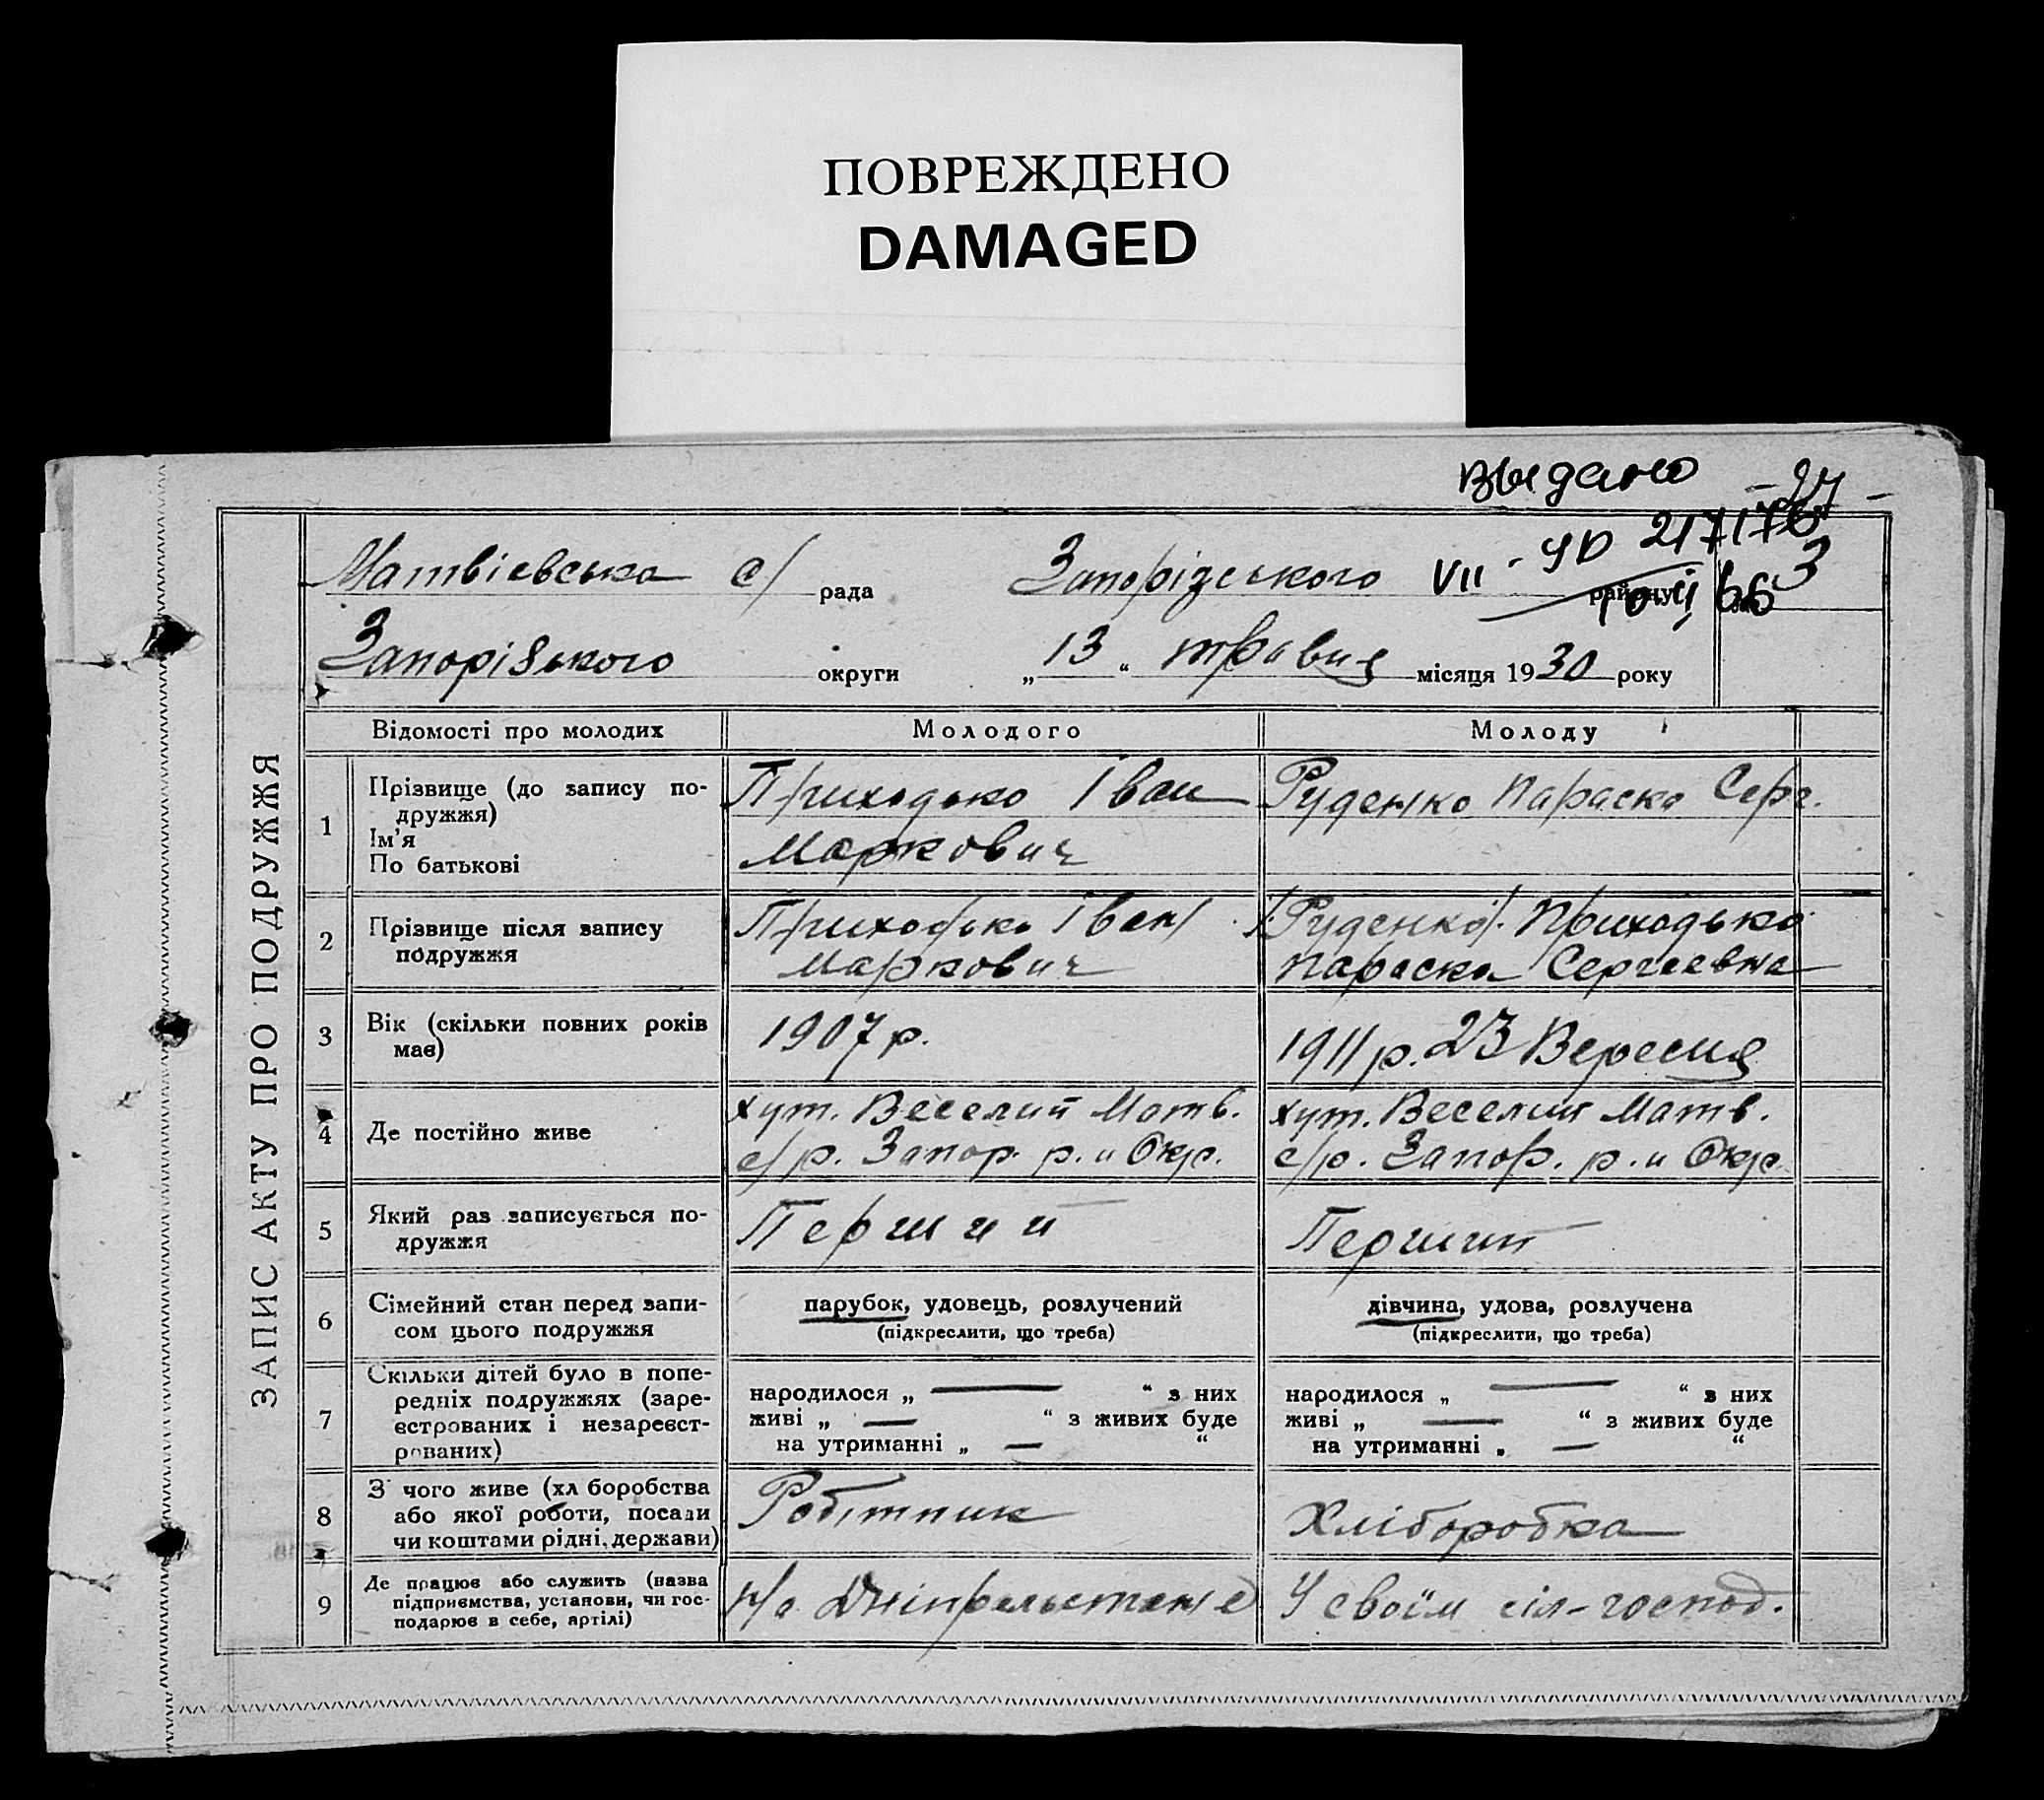 ПОВРЕЖДЕНО
DAMAGED
выдано
-24-
VII-ЯР 217176
3
Матвієвська с/ рада Запорізського району
Запорізького округи „13“ травня місяця 1930 року
ЗАПИС АКТУ ПРО ПОДРУЖЖЯ
Відомості про молодих Молодого Молоду
1 Прізвище (до запису по-
дружжя)
Ім'я
По батькові
Приходько Іван
Маркович
Руденко Параска Серг.
2 Прізвище після запису
подружжя
Приходько Іван
Маркович
/Руденко/. Приходько
Параска Сергеевна
3 Вік (скільки повних років
має)
1907 р.
1911 р. 23 Вересня
4 Де постійно живе
хут. Веселий Матв.
с/р. Запор. р. и Окр.
хут. Веселий Матв.
с/р. Запор. р. и Окр.
5 Який раз записується по-
дружжя
Перший
Перший
6 Сімейний стан перед запи-
сом цього подружжя
парубок, удовець, розлучений
(підкреслити, що треба)
дівчина, удова, розлучена
(підкреслити, що треба)
7 Скільки дітей було в попе-
редніх подружжях (заре-
єстрованих і незареєст-
рованих)
народилося „ — “ з них
живі „ — “ з живих буде
на утриманні „ — “
народилося „ — “ з них
живі „ — “ з живих буде
на утриманні „ — “
8 З чого живе (хл боробства
або якої роботи, посади
чи коштами рідні, держави)
Робітник
Хліборобка
9 Де працює або служить (назва
підприємства, установи, чи гос-
подарює в себе, артілі)
Н/а Дніпрельстане
У своїм сіл-господ.